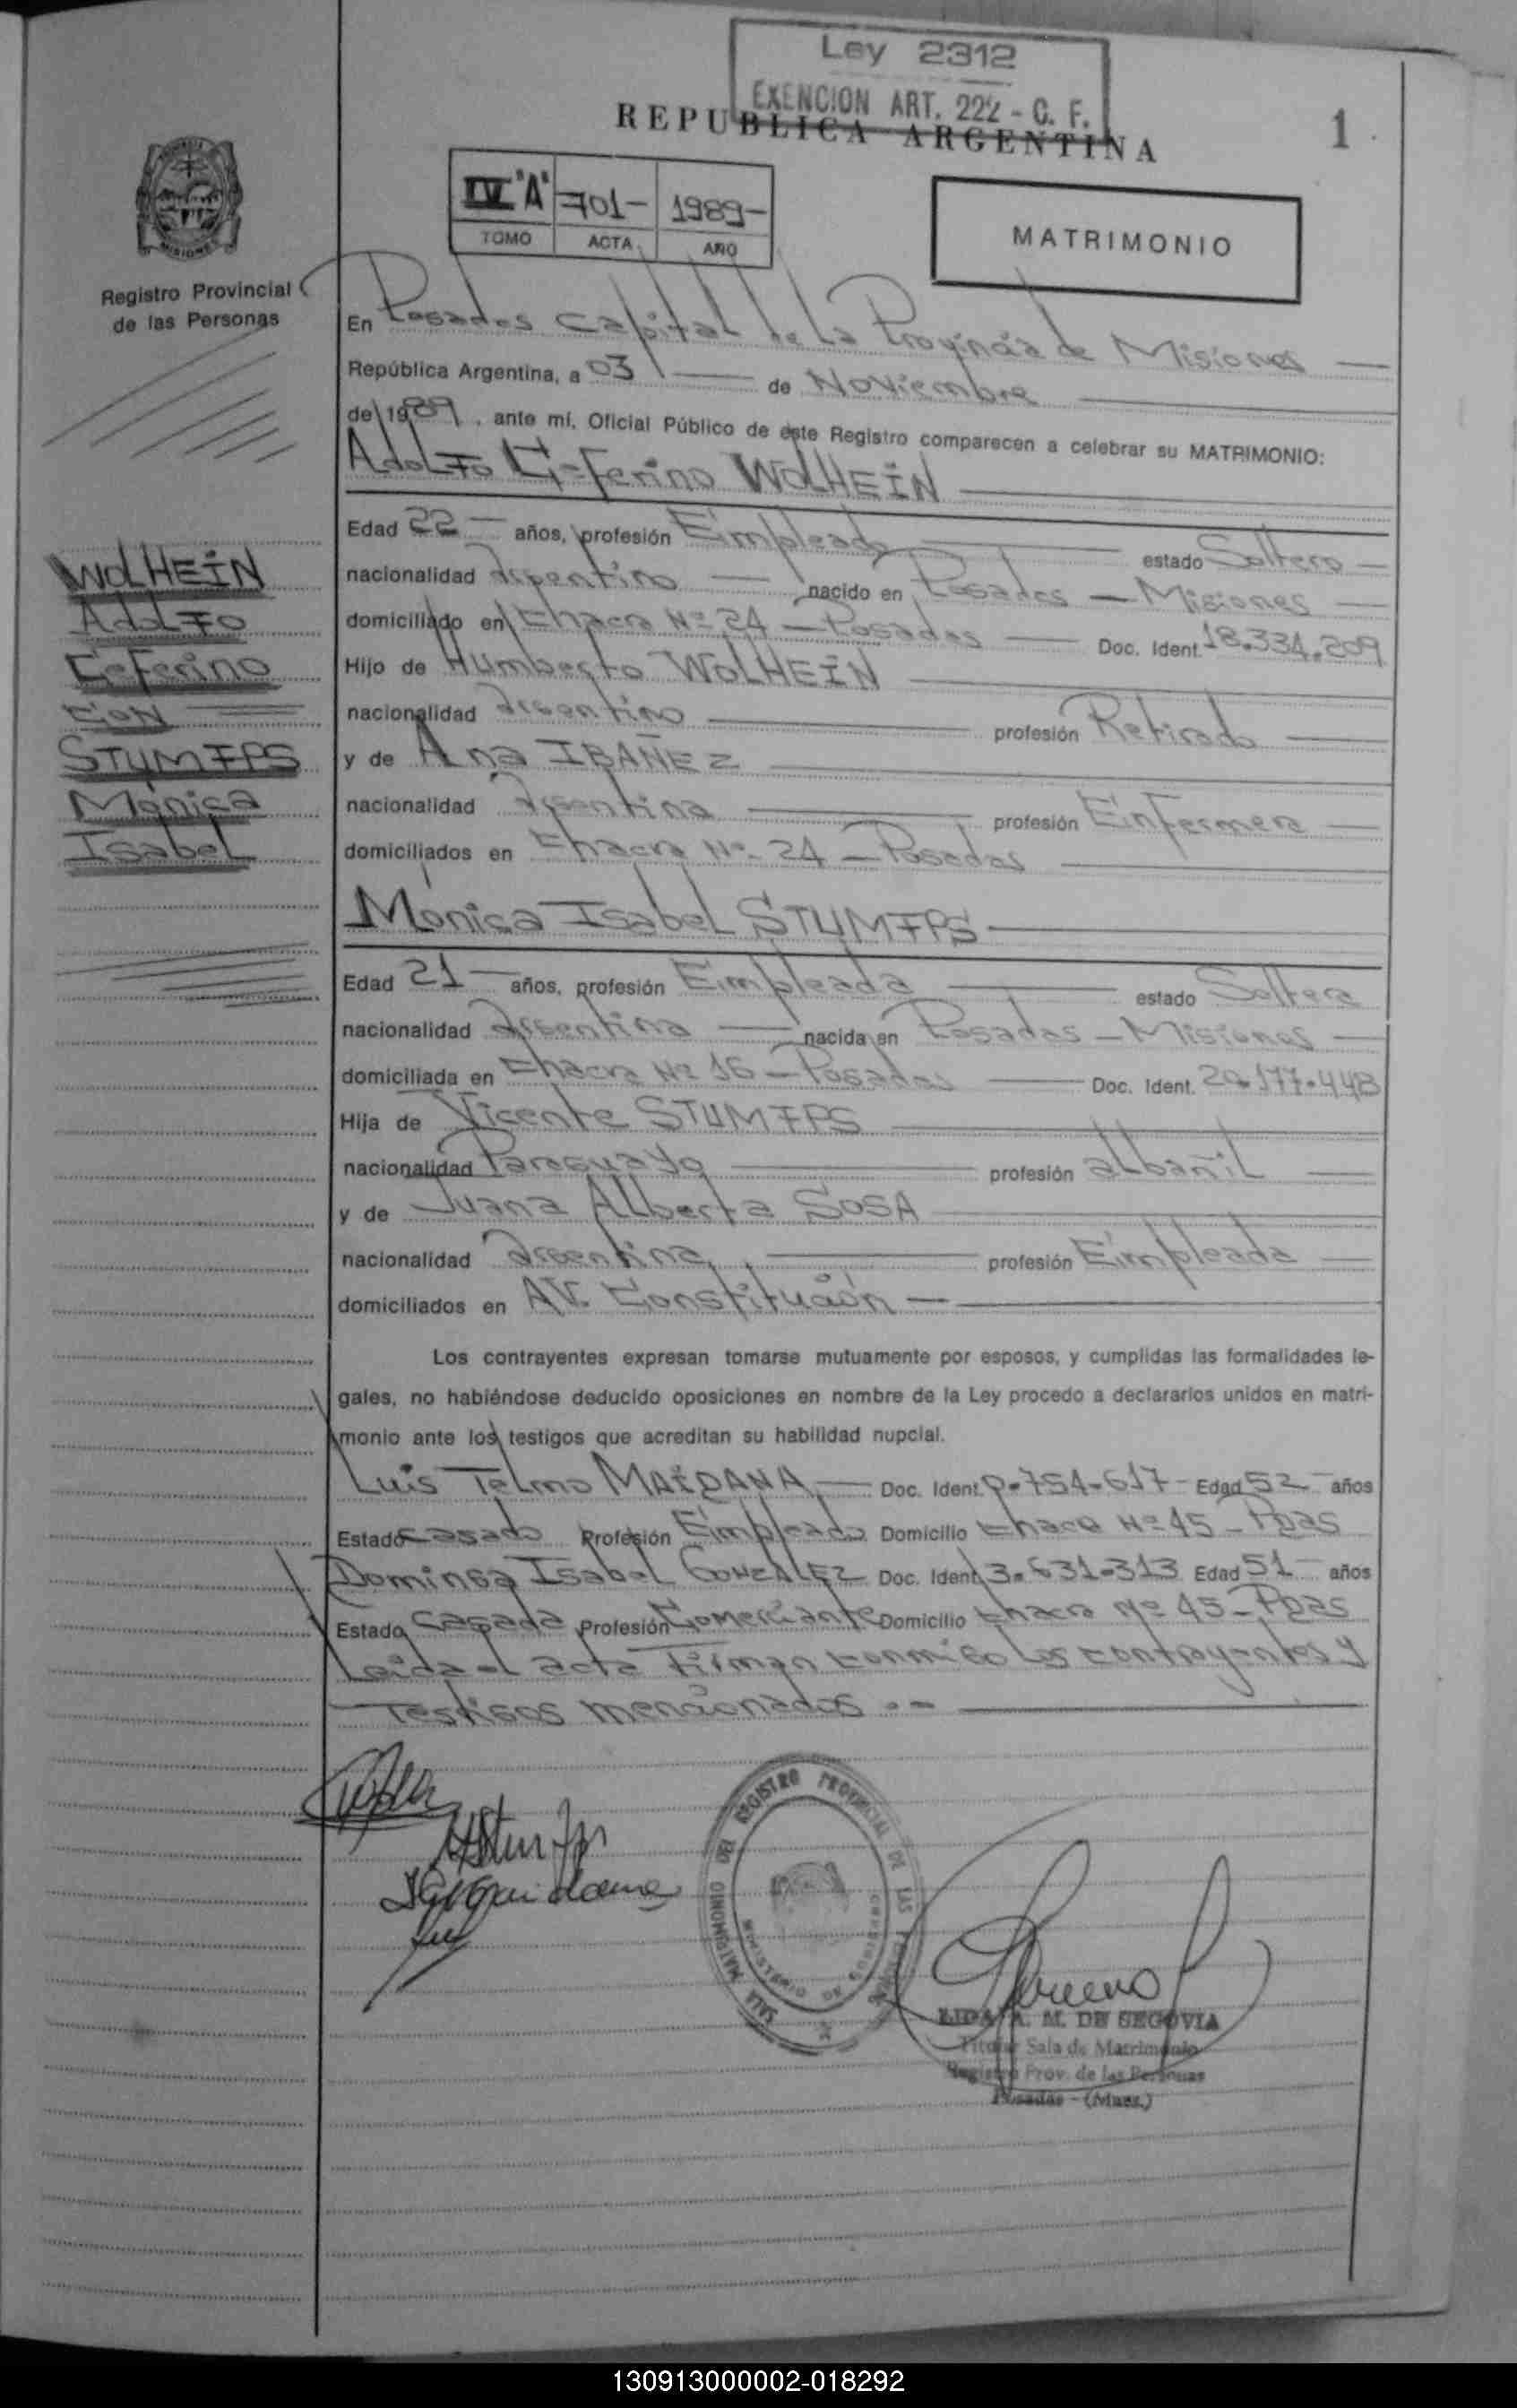 Ley 2312
EXENCION ART. 222 - C. F.
REPUBLICA ARGENTINA
1
IV "A" 701- 1989-
TOMO ACTA AÑO
MATRIMONIO
Registro Provincial
de las Personas
En Posadas Capital de la Provincia de Misiones
República Argentina, a 03 de Noviembre
de 1989, ante mí, Oficial Público de este Registro comparecen a celebrar su MATRIMONIO:
Adolfo Ceferino WOLHEIN
Edad 22 años, profesión Empleado estado Soltero
nacionalidad argentino nacido en Posadas - Misiones
domiciliado en Chacra Nº 24 - Posadas Doc. Ident. 18.334.209
Hijo de Humberto WOLHEIN
nacionalidad argentino profesión Retirado
y de Ana IBAÑEZ
nacionalidad argentina profesión Enfermera
domiciliados en Chacra Nº 24 - Posadas
WOLHEIN
Adolfo
Ceferino
CON
STUMFPS
Mónica
Isabel
Mónica Isabel STUMFPS
Edad 21 años, profesión Empleada estado Soltera
nacionalidad argentina nacida en Posadas - Misiones
domiciliada en Chacra Nº 16 - Posadas Doc. Ident. 20.177.448
Hija de Vicente STUMFPS
nacionalidad Paraguayo profesión albañil
y de Juana Alberta SOSA
nacionalidad argentina profesión Empleada
domiciliados en AV. Constitución
Los contrayentes expresan tomarse mutuamente por esposos, y cumplidas las formalidades le-
gales, no habiéndose deducido oposiciones en nombre de la Ley procedo a declararlos unidos en matri-
monio ante los testigos que acreditan su habilidad nupcial.
Luis Telmo MAIDANA Doc. Ident. 0.754.617 Edad 52 años
Estado Casado Profesión Empleado Domicilio Chacra Nº 45 - Pdas
Dominga Isabel GONZALEZ Doc. Ident. 3.631.313 Edad 51 años
Estado Casada Profesión Comerciante Domicilio Chacra Nº 45 - Pdas
Leída el acta firman conmigo los contrayentes y
Testigos mencionados . -
SALA MATRIMONIO DEL REGISTRO PROVINCIAL DE LAS PERSONAS
MINISTERIO DE GOBIERNO
LIDA A. M. DE SEGOVIA
Titular Sala de Matrimonio
Registro Prov. de las Personas
Posadas - (Mnes.)
130913000002-018292